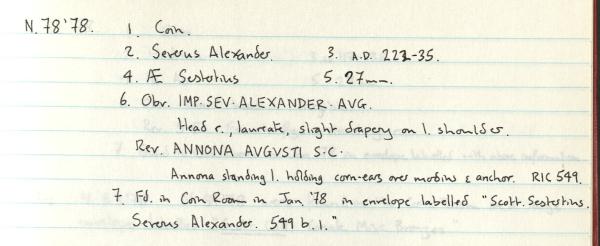 N. 78 '78. 1. Coin.
2. Severus Alexander. 3. A.D. 222-35.
4. Æ Sestertius 5. 27mm.
6. Obv. IMP·SEV·ALEXANDER·AVG.
Head r., laureate, slight drapery on l. shoulder.
Rev. ANNONA AVGVSTI S·C·
Annona standing l. holding corn-ears over modius & anchor. RIC 549.
7. Fd. in Coin Room in Jan '78 in envelope labelled "Scott. Sestertius.
Severus Alexander. 549 b. 1."